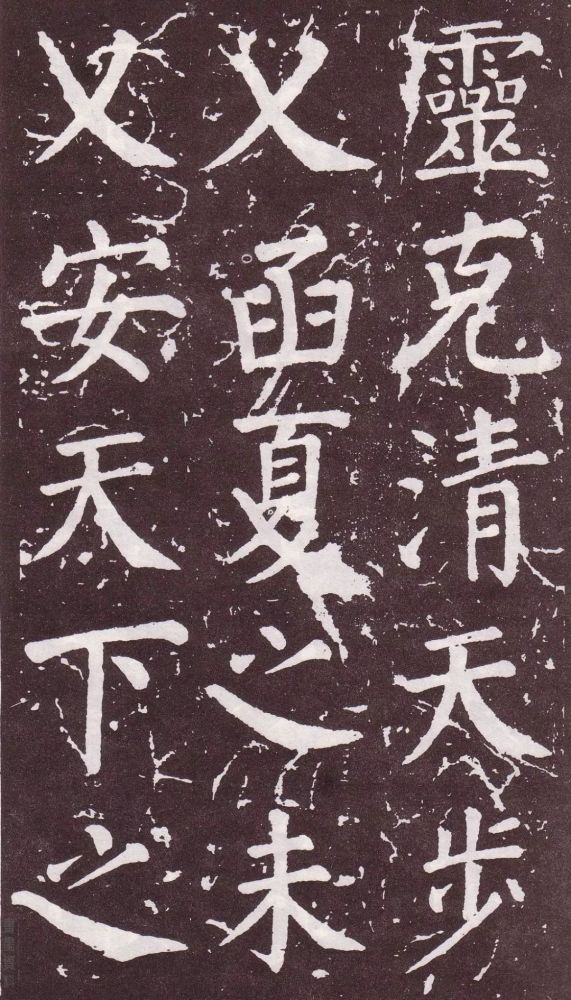 靈克清天步
乂函夏之未
乂安天下之